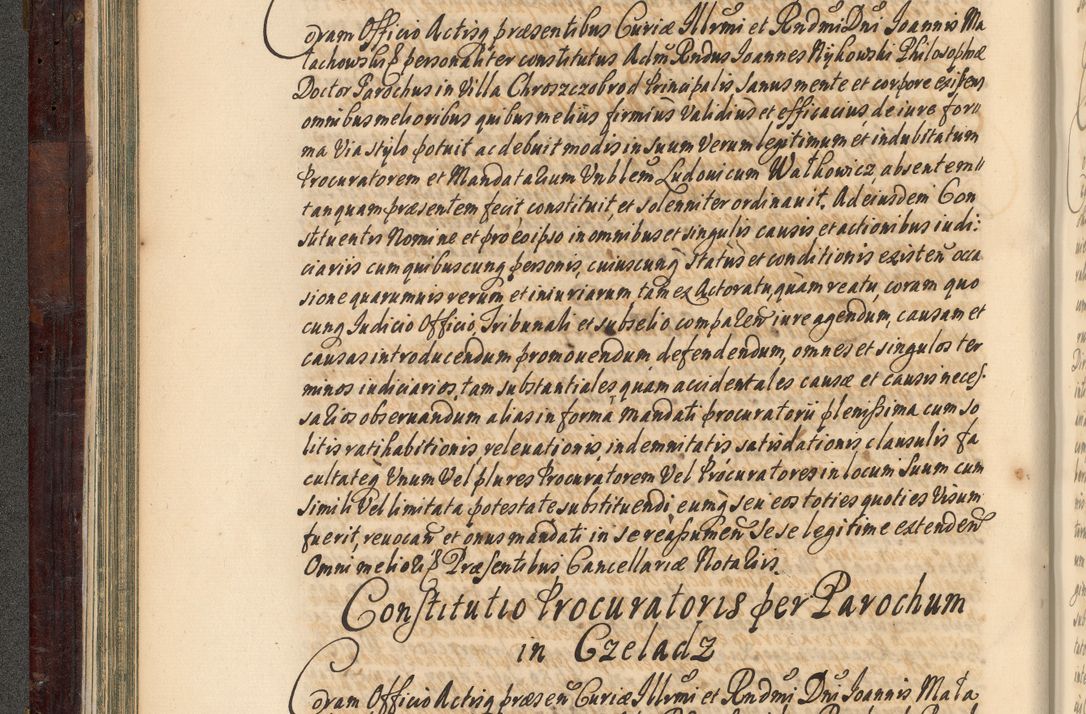 Coram Officio Actisq præsentibus Curiæ Illrmi et Rndmi Dni Ioannis Ma
lachowski personaliter constitutus Adm Rndus Ioannes Nykowski Philosophiæ
Doctor Parochus in Villa Chroszczobrod Principalis Sanus mente et corpore existens
omnibus melioribus quibus melius firmius validius et efficacius de iure for
ma via stylo potuit ac debuit modis in suum Verum legitimum et indubitatum
Procuratorem et Mandatarium Vnblem Ludovicum Walkowicz absentem
tanquam præsentem fecit constituit, et solenniter ordinauit. Ad eiusdem Con
stituentis Nomine et pro eo ipso in omnibus et singulis causis et actionibus iudi:
ciariis cum quibuscunq personis, cuiuscunq status et conditionis existen occa
sione quarumuis rerum et iniuriarum tam ex Actoratu, quàm reatu, coram quo
cunq Iudicio Officio, Tribunali et subselio comparen iure agendum, causam et
causas introducendum promouendum, defendendum, omnes et singulos ter
minos iudiciarios, tam substantiales quam accidentales causæ et causis neces
sarios obseruandum alias in formâ Mandati procuratorii plenissima cum so
litis ratihabitionis releuationis, indemnitatis satisdationis, clausulis fa
cultateq Vnum Vel plures Procuratorem Vel Procuratores in locum Suum cum
simili Vel limitata potestate substituendi eumq seu eos toties quoties Visum
fuerit, reuocan et onus mandati in se reassumen Sese legitime extenden
Omni meliori Præsentibus Cancellariæ Notariis.
Constitutio Procuratoris per Parochum
in Czeladz
Coram Officio Actisq præsen Curiæ Illrmi et Rndmi Dni Ioannis Mała